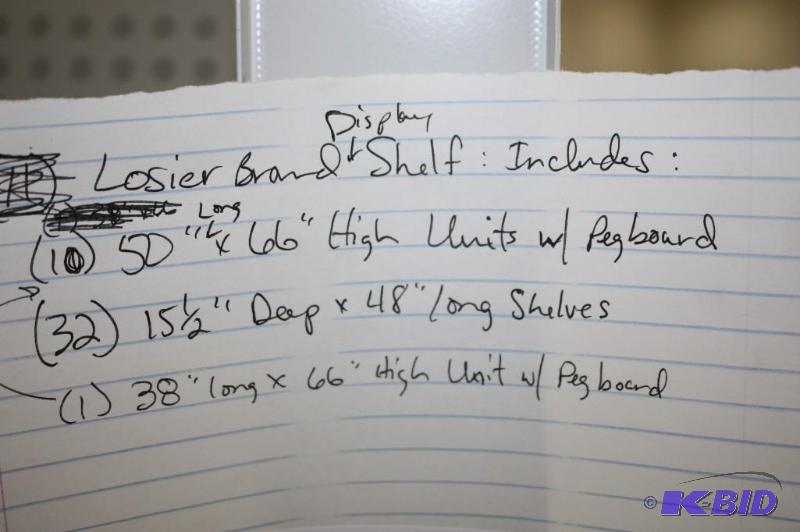 Display
Losier Brand Shelf : Includes :
Long
(10) 50" x 66" High Units w/ Pegboard
(32) 15½" Deep x 48" long Shelves
(1) 38" long x 66" High Unit w/ Pegboard
© K-BID